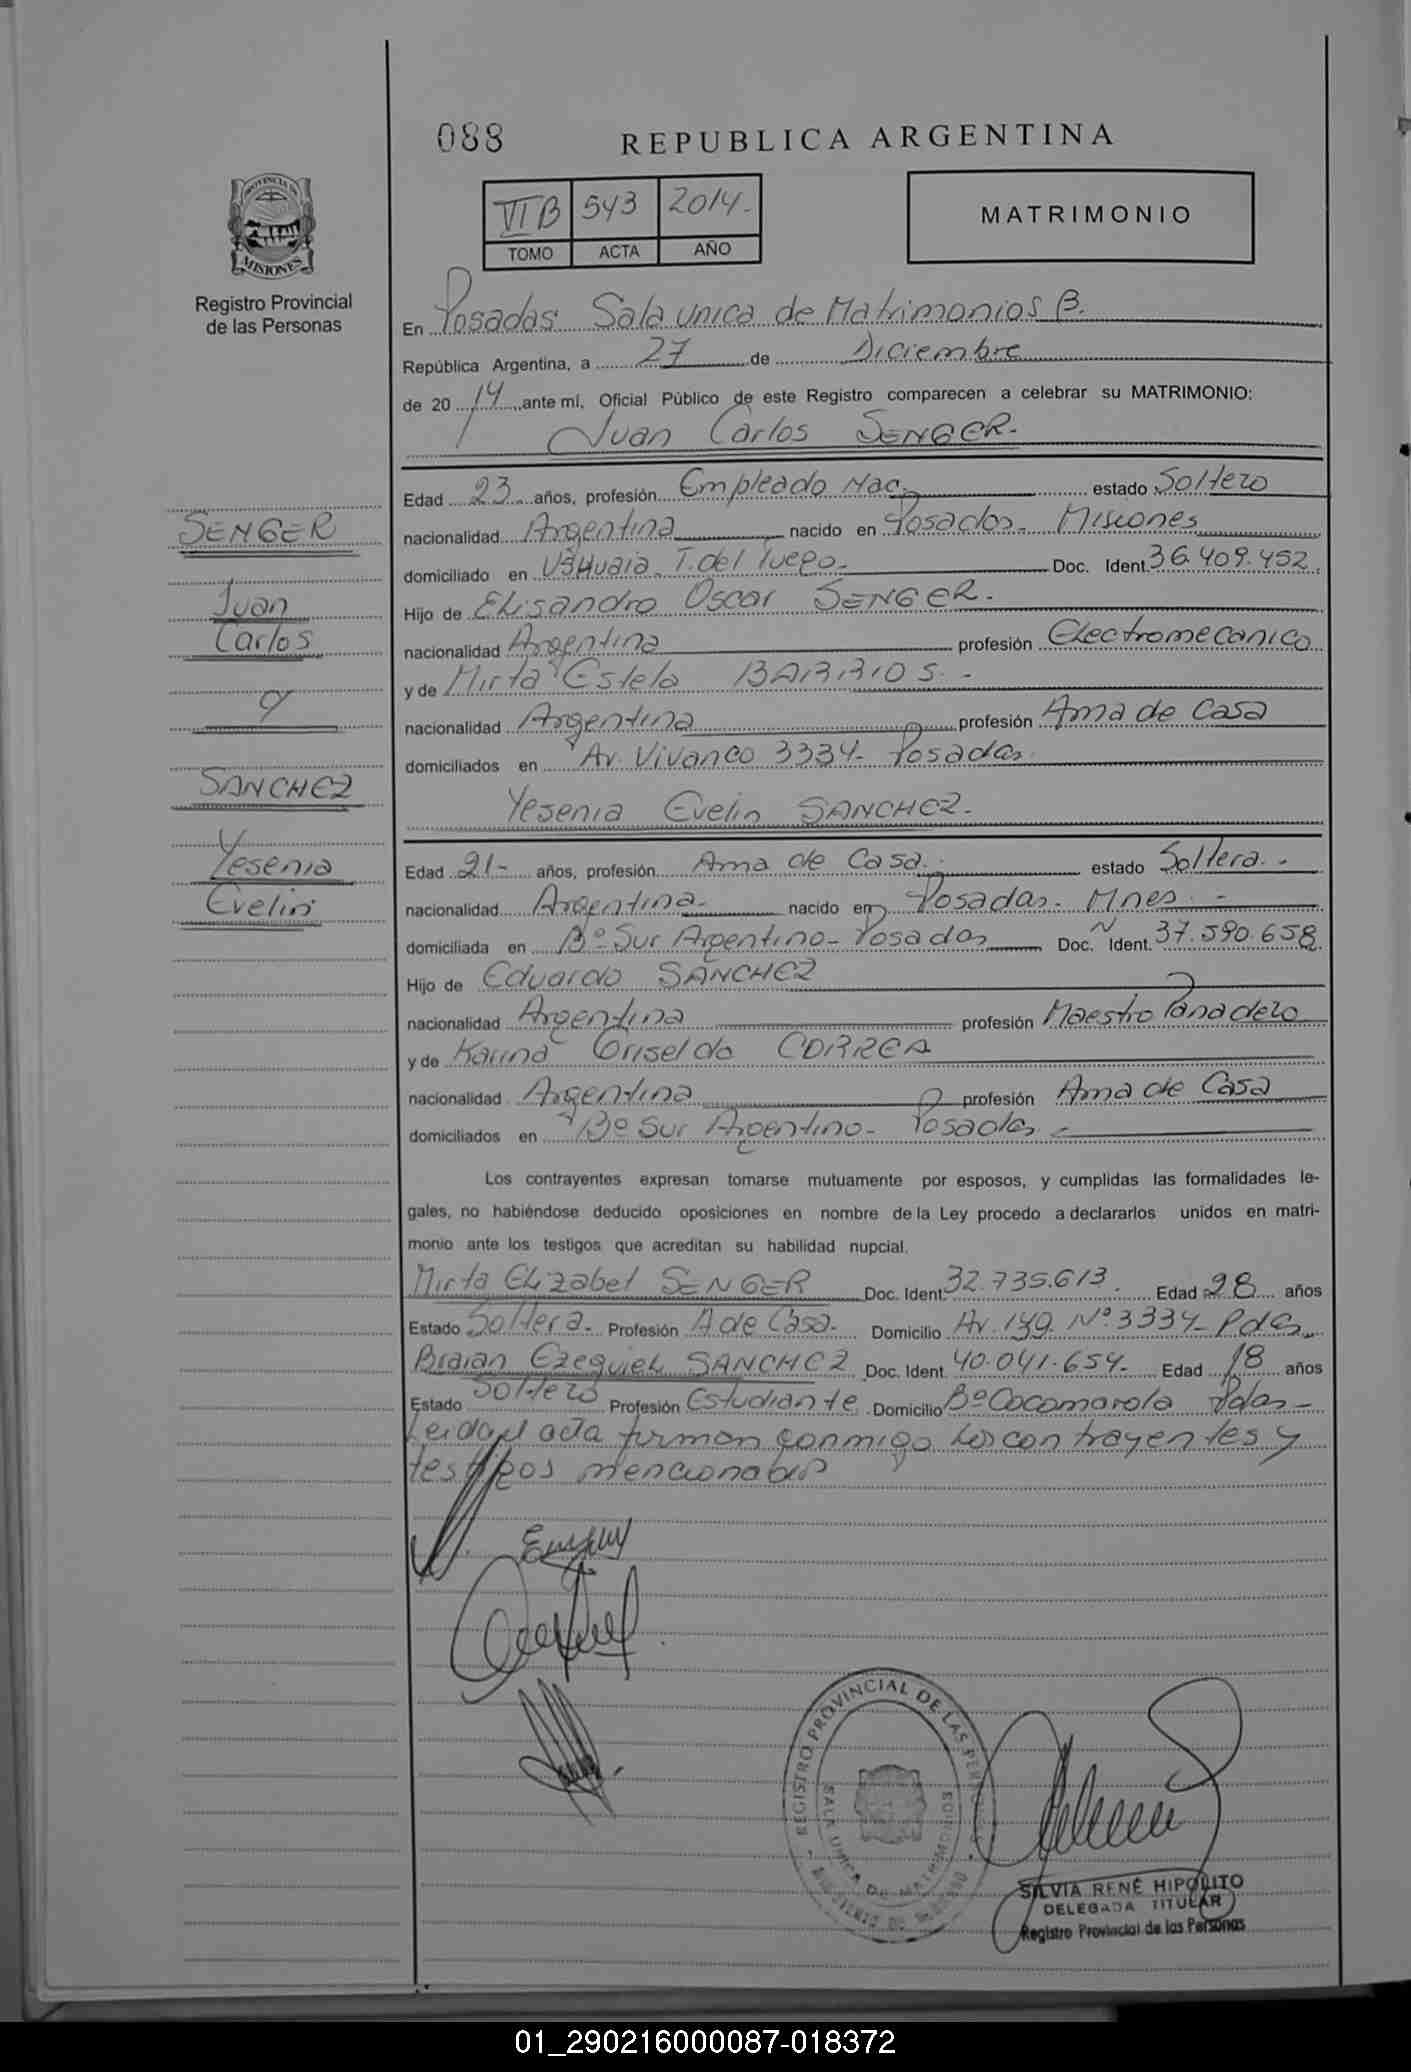 088
REPUBLICA ARGENTINA
VI B 543 2014.
TOMO ACTA AÑO
MATRIMONIO
PROVINCIA DE
MISIONES
Registro Provincial
de las Personas
En Posadas Sala unica de Matrimonios B.
República Argentina, a 27 de Diciembre
de 20 14 ante mí, Oficial Público de este Registro comparecen a celebrar su MATRIMONIO:
Juan Carlos SENGER.
Edad 23 años, profesión Empleado Nac. estado Soltero
nacionalidad Argentina nacido en Posadas. Misiones
domiciliado en Ushuaia T. del Fuego. Doc. Ident. 36.409.452
Hijo de Elisandro Oscar SENGER.
nacionalidad Argentina profesión Electromecanico
y de Mirta Estela BARRIOS. -
nacionalidad Argentina profesión Ama de Casa
domiciliados en Av. Vivanco 3334- Posadas.
Yesenia Evelin SANCHEZ.
Edad 21- años, profesión Ama de Casa. estado Soltera. -
nacionalidad Argentina. nacido en Posadas. Mnes. -
domiciliada en Bº Sur Argentino- Posadas Doc. Ident. 37.590.658
Hijo de Eduardo SANCHEZ
nacionalidad Argentina profesión Maestro Panadero
y de Karina Griselda CORREA
nacionalidad Argentina profesión Ama de Casa
domiciliados en Bº Sur Argentino- Posadas -
Los contrayentes expresan tomarse mutuamente por esposos, y cumplidas las formalidades le-
gales, no habiéndose deducido oposiciones en nombre de la Ley procedo a declararlos unidos en matri-
monio ante los testigos que acreditan su habilidad nupcial.
Mirta Elizabel SENGER Doc. Ident. 32.735.613. Edad 28 años
Estado Soltera. Profesión A de Casa. Domicilio Av. 149. Nº 3334- Pdas.
Braian Ezequiel SANCHEZ Doc. Ident. 40.041.654. Edad 18 años
Estado Soltero Profesión Estudiante. Domicilio Bº Cocomarola Pdas-
Leida el acta firman conmigo los contrayentes y
testigos mencionados
SENGER
Juan
Carlos
y
SANCHEZ
Yesenia
Evelin
REGISTRO PROVINCIAL DE LAS PERSONAS
SALA UNICA DE MATRIMONIOS
MINISTERIO DE GOBIERNO
SILVIA RENÉ HIPOLITO
DELEGADA TITULAR
Registro Provincial de las Personas
01_290216000087-018372